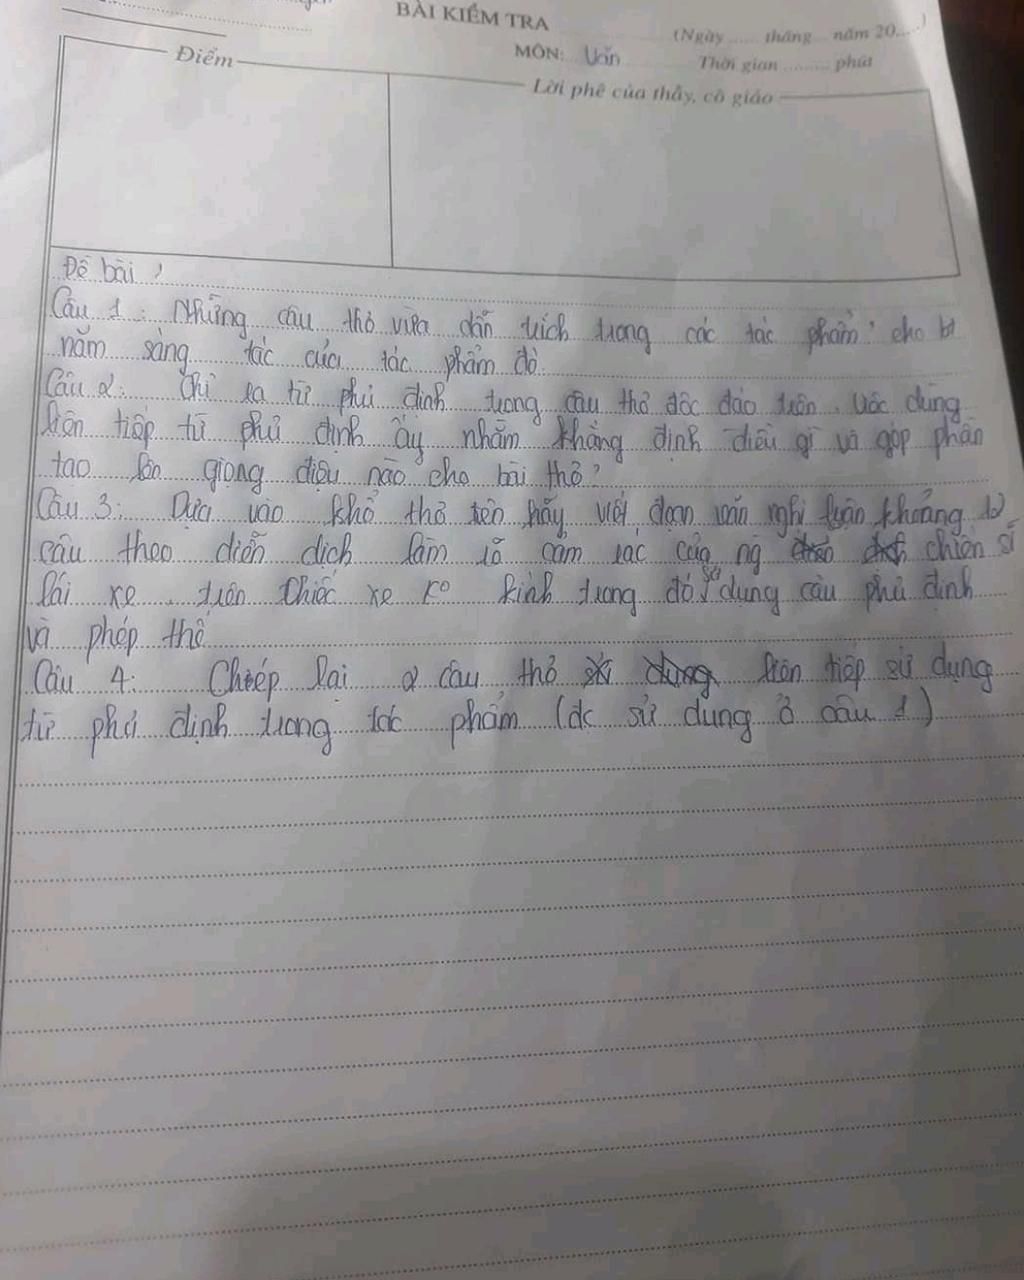 BÀI KIỂM TRA
(Ngày ...... tháng ... năm 20....)
MÔN: Văn
Thời gian ......... phút
Điểm
Lời phê của thầy, cô giáo
Đề bài :
Câu 1 : Những câu thơ vừa dẫn trích trong các tác phẩm ? cho bt
năm sáng tác của tác phẩm đó.
Câu 2: Chỉ ra từ phủ định trong câu thơ độc đáo trên. Việc dùng
liên tiếp từ phủ định ấy nhằm khẳng định điều gì và góp phần
tạo lên giọng điệu nào cho bài thơ ?
Câu 3: Dựa vào khổ thơ trên hãy viết đoạn văn nghị luận khoảng 12
câu theo diễn dịch làm rõ cảm xác của ng chiến sĩ
lái xe trên chiếc xe ko kính trong đó sử dụng câu phủ định
và phép thế
Câu 4: Chép lại 2 câu thơ liên tiếp sử dụng
từ phủ định trong tác phẩm (đc sử dụng ở câu 1)